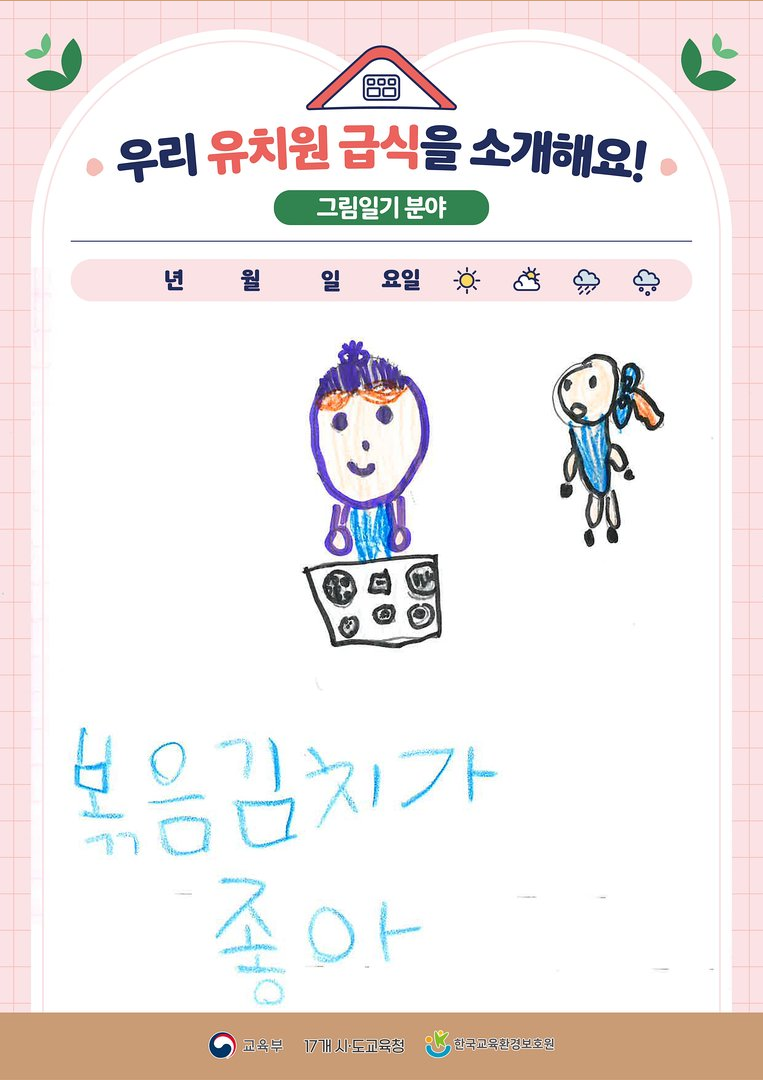 우리 유치원 급식을 소개해요!
그림일기 분야
년 월 일 요일
볶음김치가
좋아
교육부 17개 시·도교육청 한국교육환경보호원